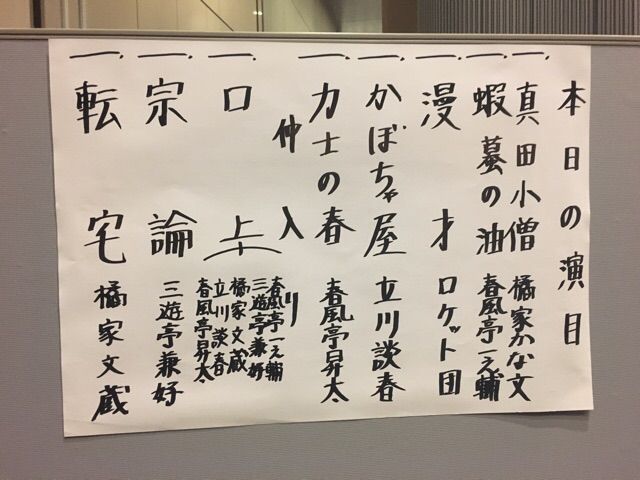 本日の演目
一、真田小僧 橘家かな文
一、蝦蟇の油 春風亭一之輔
一、漫才 ロケット団
一、かぼちゃ屋 立川談春
一、力士の春 春風亭昇太
仲入り
一、口上
春風亭一之輔
三遊亭兼好
橘家文蔵
立川談春
春風亭昇太
一、宗論 三遊亭兼好
一、転宅 橘家文蔵